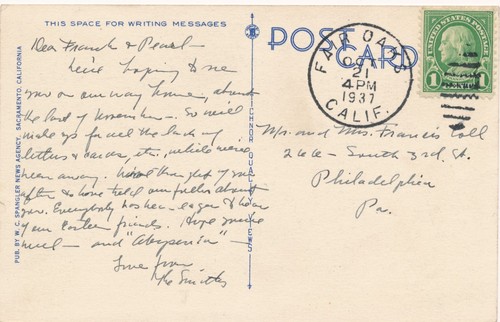 THIS SPACE FOR WRITING MESSAGES
POSTCARD
Dear Frank & Pearl –
We're hoping to see
you on our way home, about
the last of November – So will
make up for all the lack of
letters & cards, etc., while we're
been away. thought of you
often & have told our folks about
you. Everybody has been eager to hear
of our Eastern friends. Hope you're
well – and "Abyssinia" –
Love from
The Smiths
FAIR OAKS
OCT
21
4 PM
1937
CALIF.
1 1
Mr. and Mrs. Francis
266 – South 3rd. St.
Philadelphia
Pa.
PUB. BY W. C. SPANGLER NEWS AGENCY, SACRAMENTO, CALIFORNIA